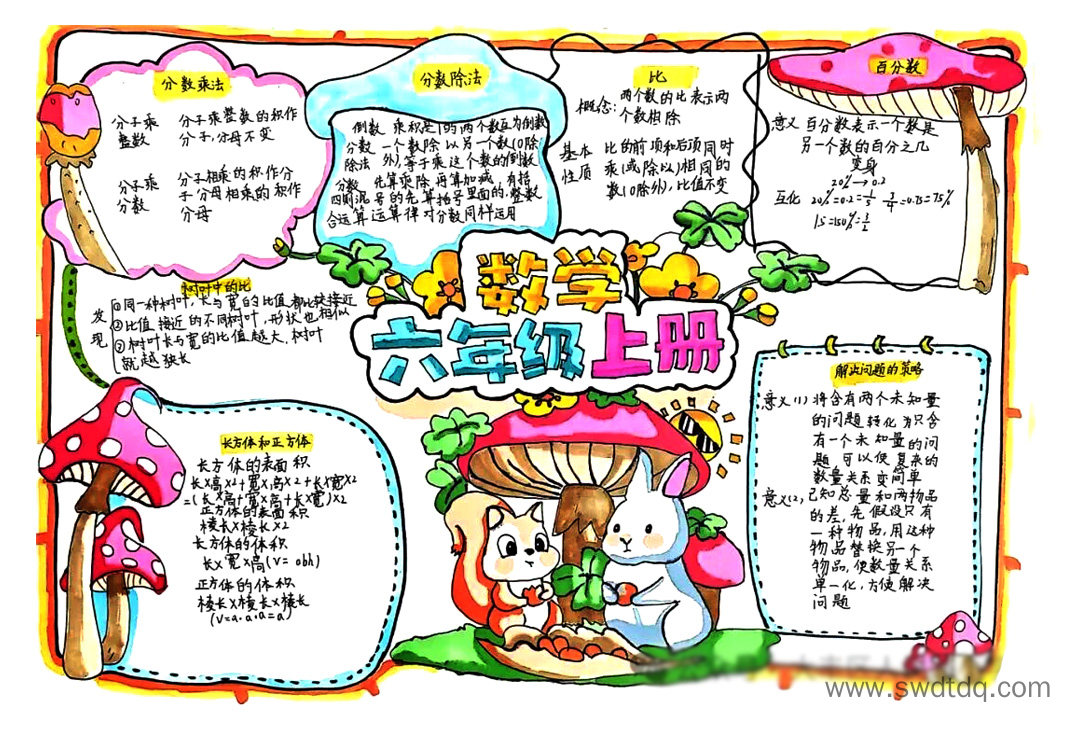 分数乘法
分子乘 分子乘整数的积作
整数 分子,分母不变
分子乘 分子相乘的积作分
分数 子分母相乘的积作
分母
分数除法
倒数 乘积是1的两个数互为倒数
分数 一个数除以另一个数(0除
除法 外),等于乘这个数的倒数
分数 先算乘除,再算加减,有括
四则混 号的先算括号里面的,整数
合运算 运算律对分数同样适用
比
概念: 两个数的比表示两
个数相除
基本 比的前项和后项同时
性质 乘(或除以)相同的
数(0除外),比值不变
百分数
意义 百分数表示一个数是
另一个数的百分之几
变身
20%→0.2
互化 20%=0.2=1/5 3/4=0.75=75%
树叶中的比
发现
①同一种树叶,长与宽的比值都比较接近
②比值接近的不同树叶,形状也相似
③树叶长与宽的比值越大,树叶
就越狭长
数学
六年级上册
长方体和正方体
长方体的表面积
长×高×2+宽×高×2+长×宽×2
=(长×高+宽×高+长×宽)×2
正方体的表面积
棱长×棱长×2
长方体的体积
长×宽×高(V=abh)
正方体的体积
棱长×棱长×棱长
(V=a·a·a=a³)
解决问题的策略
意义(1) 将含有两个未知量
的问题转化为只含
有一个未知量的问
题,可以使复杂的
数量关系变简单
意义(2) 已知总量和两物品
的差,先假设只有
一种物品,用这种
物品替换另一个
物品,使数量关系
单一化,方便解决
问题
www.swdtdq.com